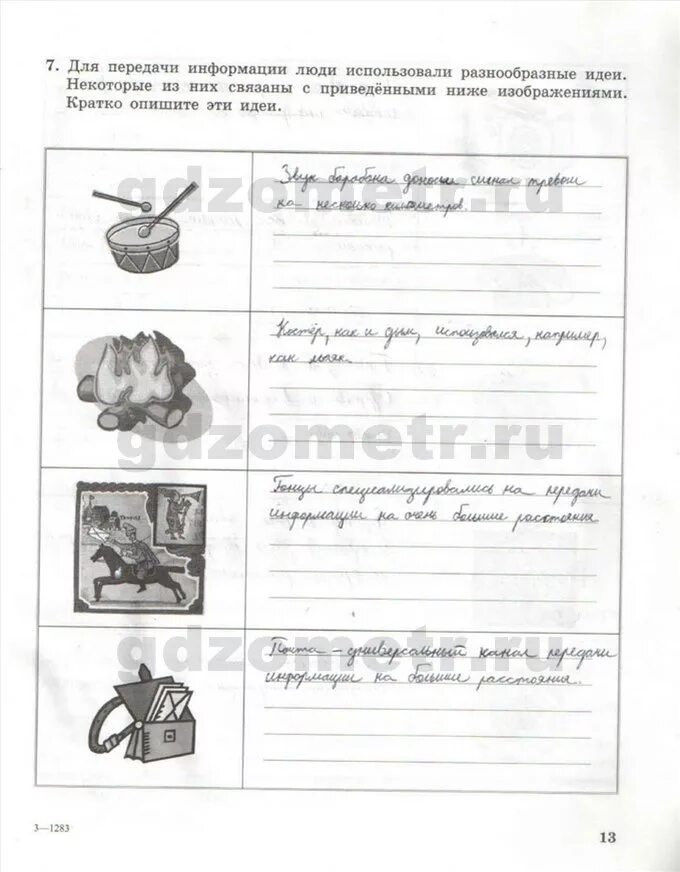 7. Для передачи информации люди использовали разнообразные идеи.
Некоторые из них связаны с приведёнными ниже изображениями.
Кратко опишите эти идеи.
Звук барабана доносил сигнал тревоги
на несколько километров.
gdzometr.ru
Костёр, как и дым, использовался, например,
как маяк.
gdzometr.ru
Гонцы специализировались на передачи
информации на очень большие расстояние
gdzometr.ru
Почта – универсальный канал передачи
информации на большие расстояния.
3—1283
13